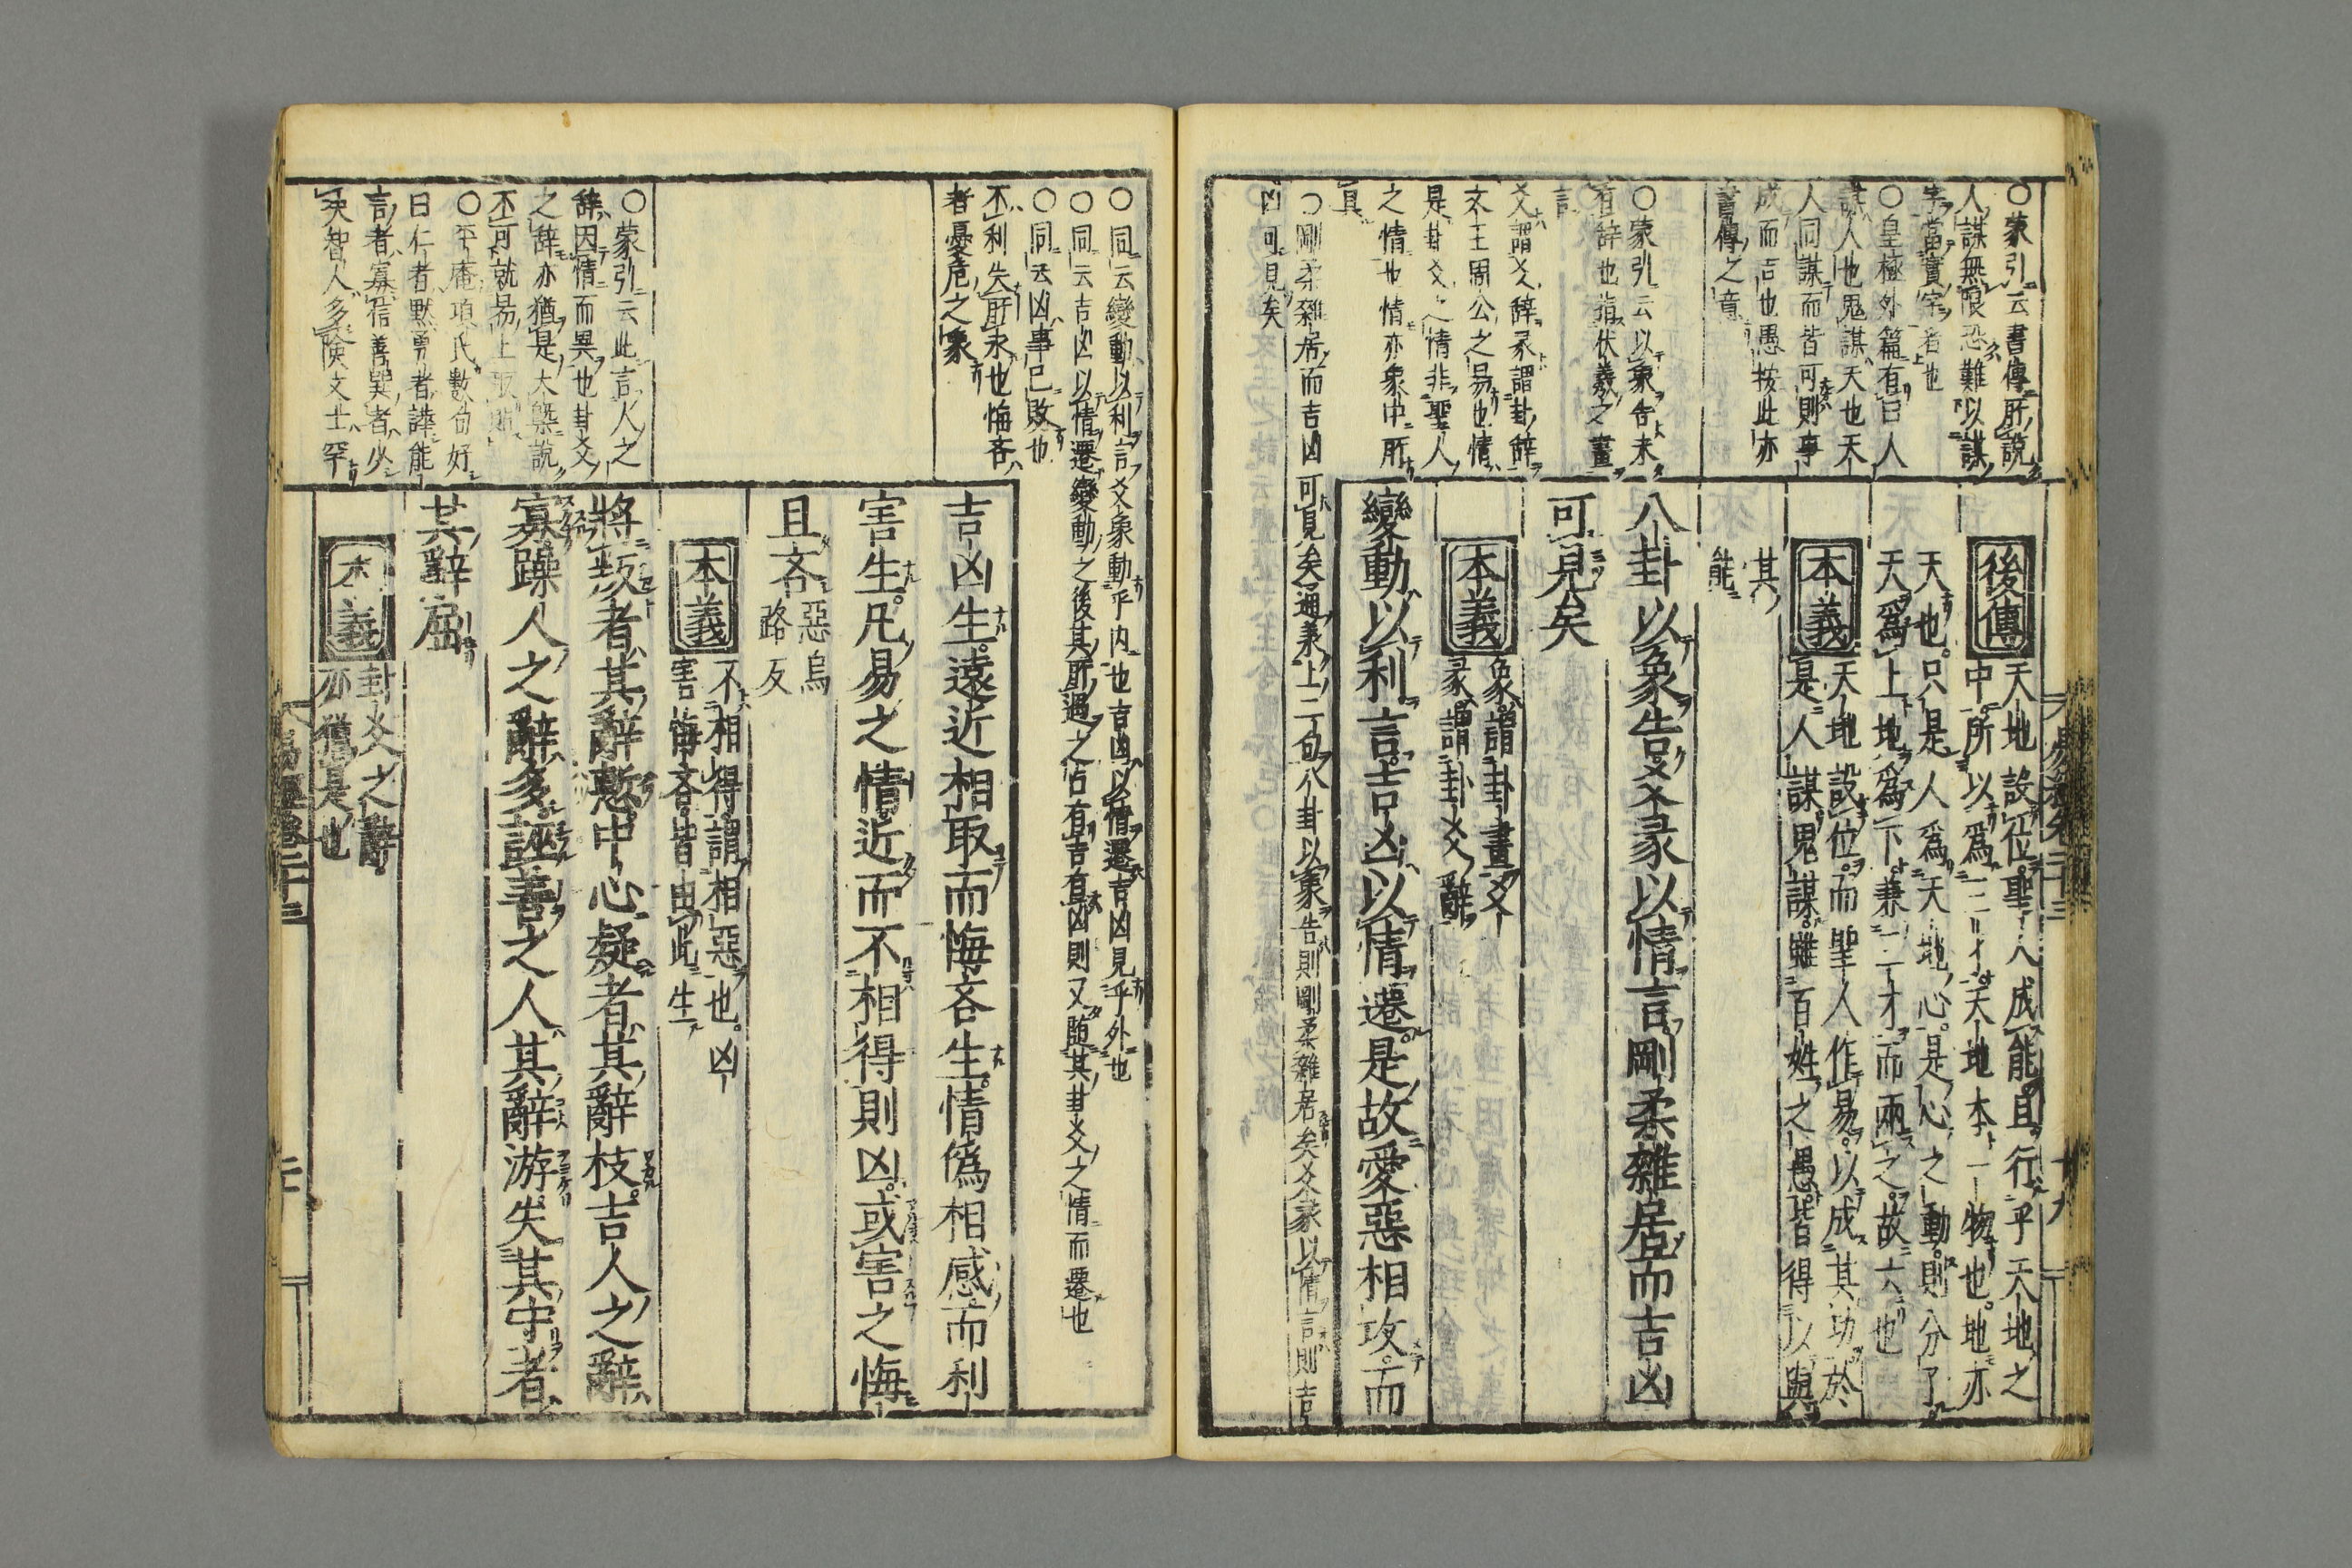 ○蒙引云書傳所說
人謀無限恐難以謀
字當實字看也
○皇極外篇有曰人
謀人也鬼謀天也天
人同謀而皆可則事
成而吉也愚按此亦
書傳之意
○蒙引云以象告未
有辞也指伏羲之畫
言
爻謂爻辞彖謂卦辞
文王周公之易也情
是卦爻之情非聖人
之情也情亦象中所
具
○剛柔雜居而吉凶可見矣通義上二句八卦以象告則剛柔雜居矣爻彖以情言則吉
凶可見矣
後傳
天地設位聖人成能且行乎天地之
中所以爲三才天地本一物也地亦
天也只是人爲天地心是心之動則分了
天爲上地爲下兼三才而兩之故六也
本義
天地設位而聖人作易以成其功於
是人謀鬼謀雖百姓之愚皆得以與
其
能
八卦以象告爻彖以情言剛柔雜居而吉凶
可見矣
本義
象謂卦畫爻
彖謂卦爻辭
變動以利言吉凶以情遷是故愛惡相攻而
易經卷二十三
十九
○同云變動以利言爻象動乎内也吉凶以情遷吉凶見乎外也
○同云吉凶以情遷變動之後其所遇之占有吉有凶則又随其卦爻之情而遷也
○同云凶事已敗也
不利失所求也悔吝
者憂危之象
○蒙引云此言人之
辞因情而異也卦爻
之辞亦猶是大槩說
不可就易上取則
○平庵項氏數句好
曰仁者默勇者譁能
言者寡信善巽者少
决智人多険文士罕
吉凶生遠近相取而悔吝生情僞相感而利
害生凡易之情近而不相得則凶或害之悔
且吝
惡烏
路反
本義
不相得謂相惡也凶
害悔吝皆由此生
將叛者其辭慙中心疑者其辭枝吉人之辭
寡躁人之辭多誣善之人其辭游失其守者
其辭屈
本義
卦爻之辭
亦猶是也
易經卷二十三
二十